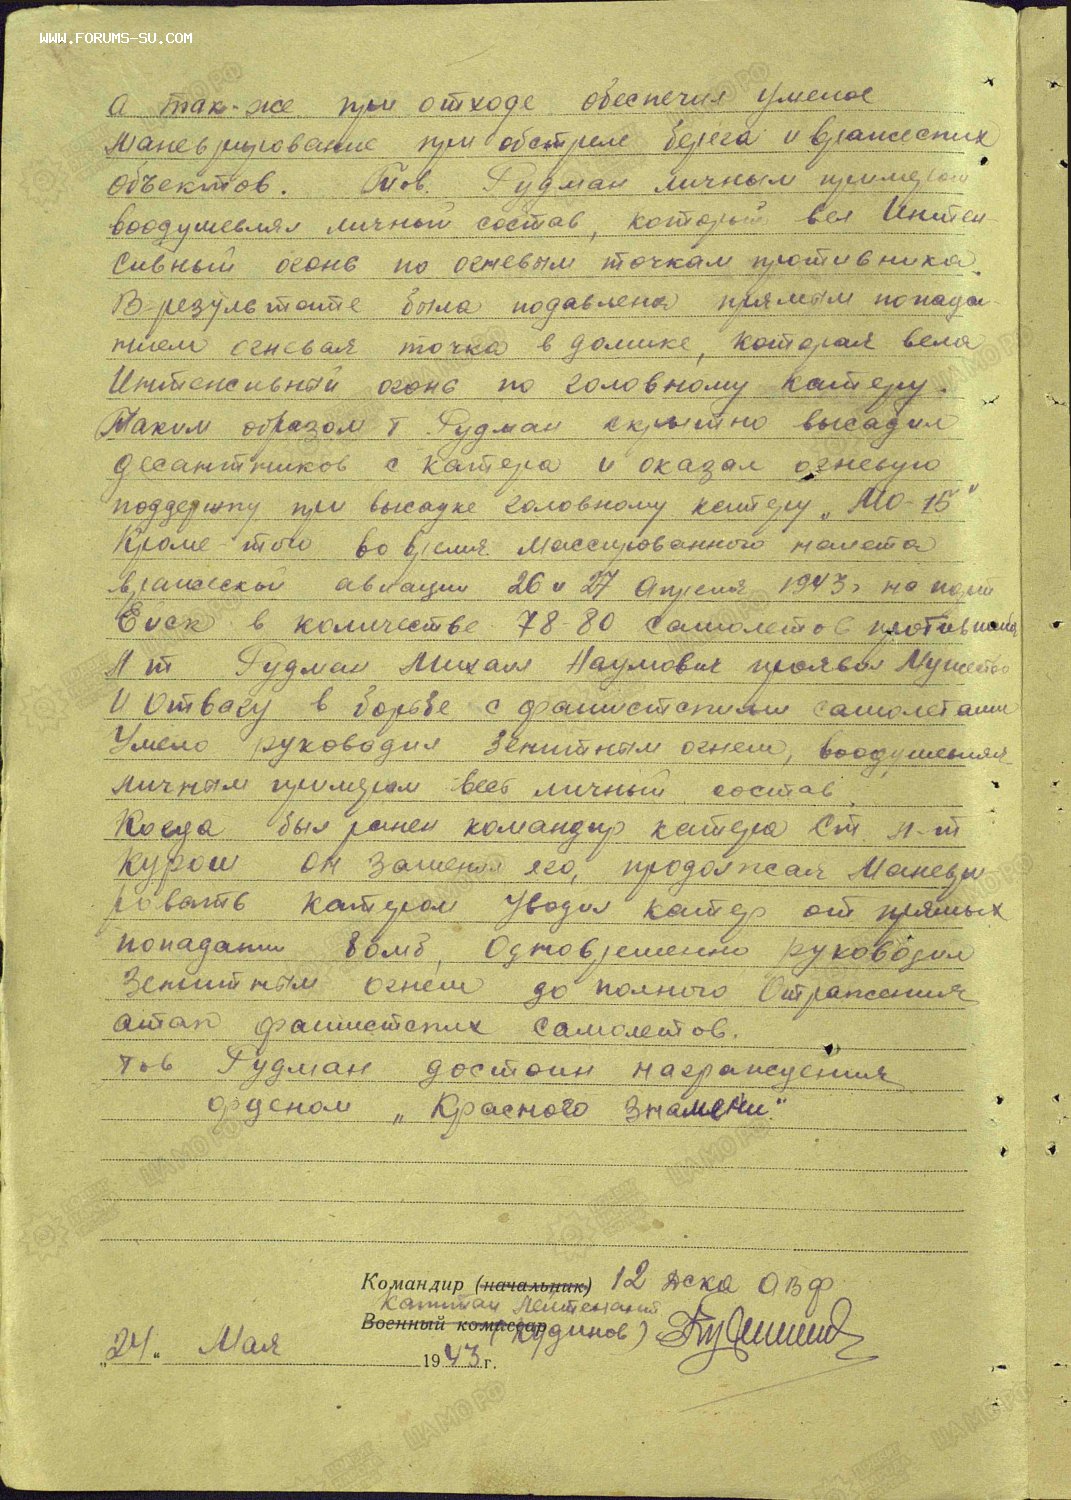 WWW.FORUMS-SU.COM
А так-же при отходе обеспечил умелое
маневрирование при обстреле берега и вражеских
объектов. Тов. Гудман личным примером
воодушевлял личный состав, который вел Интен-
сивный огонь по огневым точкам противника.
В результате была подавлена прямым попада-
нием огневая точка в домике, которая вела
Интенсивный огонь по головному катеру.
Таким образом т Гудман скрытно высадил
десантников с катера и оказал огневую
поддержку при высадке головному катеру „МО-15"
Кроме того во время массированного налета
вражеской авиации 26 и 27 Апреля 1943г на порт
Ейск в количестве 78-80 самолетов противника
Л-т Гудман Михаил Наумович проявил Мужество
И Отвагу в борьбе с фашистскими самолетами
Умело руководил Зенитным огнем, воодушевляя
личным примером весь личный состав.
Когда был ранен командир катера Ст. л-т
Курош он заменил его, продолжая Маневри
ровать катером Уводил катер от прямых
попадании бомб, Одновременно руководил
Зенитным огнем до полного Отражения
атак фашистских самолетов.
тов Гудман достоин награждения
орденом „Красного Знамени."
Командир (начальник) 12 дска АВФ
Капитан Лейтенант
Военный комиссар (Кудинов)
„24" Мая 1943 г.
ЦАМО РФ